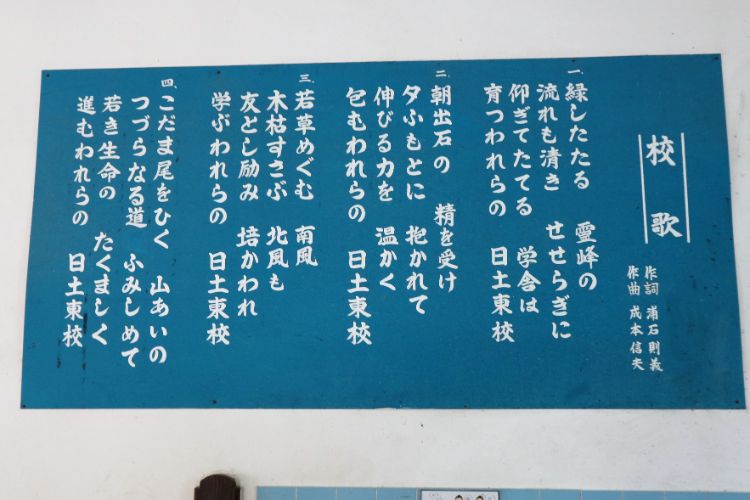 校歌
作詞 浦石則義
作曲 成本信夫
一、緑したたる 霊峰の
流れも清き せせらぎに
仰ぎてたてる 学舎は
育つわれらの 日土東校
二、朝出石の 精を受け
夕ふもとに 抱かれて
伸びる力を 温かく
包むわれらの 日土東校
三、若草めぐむ 南風
木枯すさぶ 北風も
友とし励み 培かわれ
学ぶわれらの 日土東校
四、こだま尾をひく 山あいの
つづらなる道 ふみしめて
若き生命の たくましく
進むわれらの 日土東校